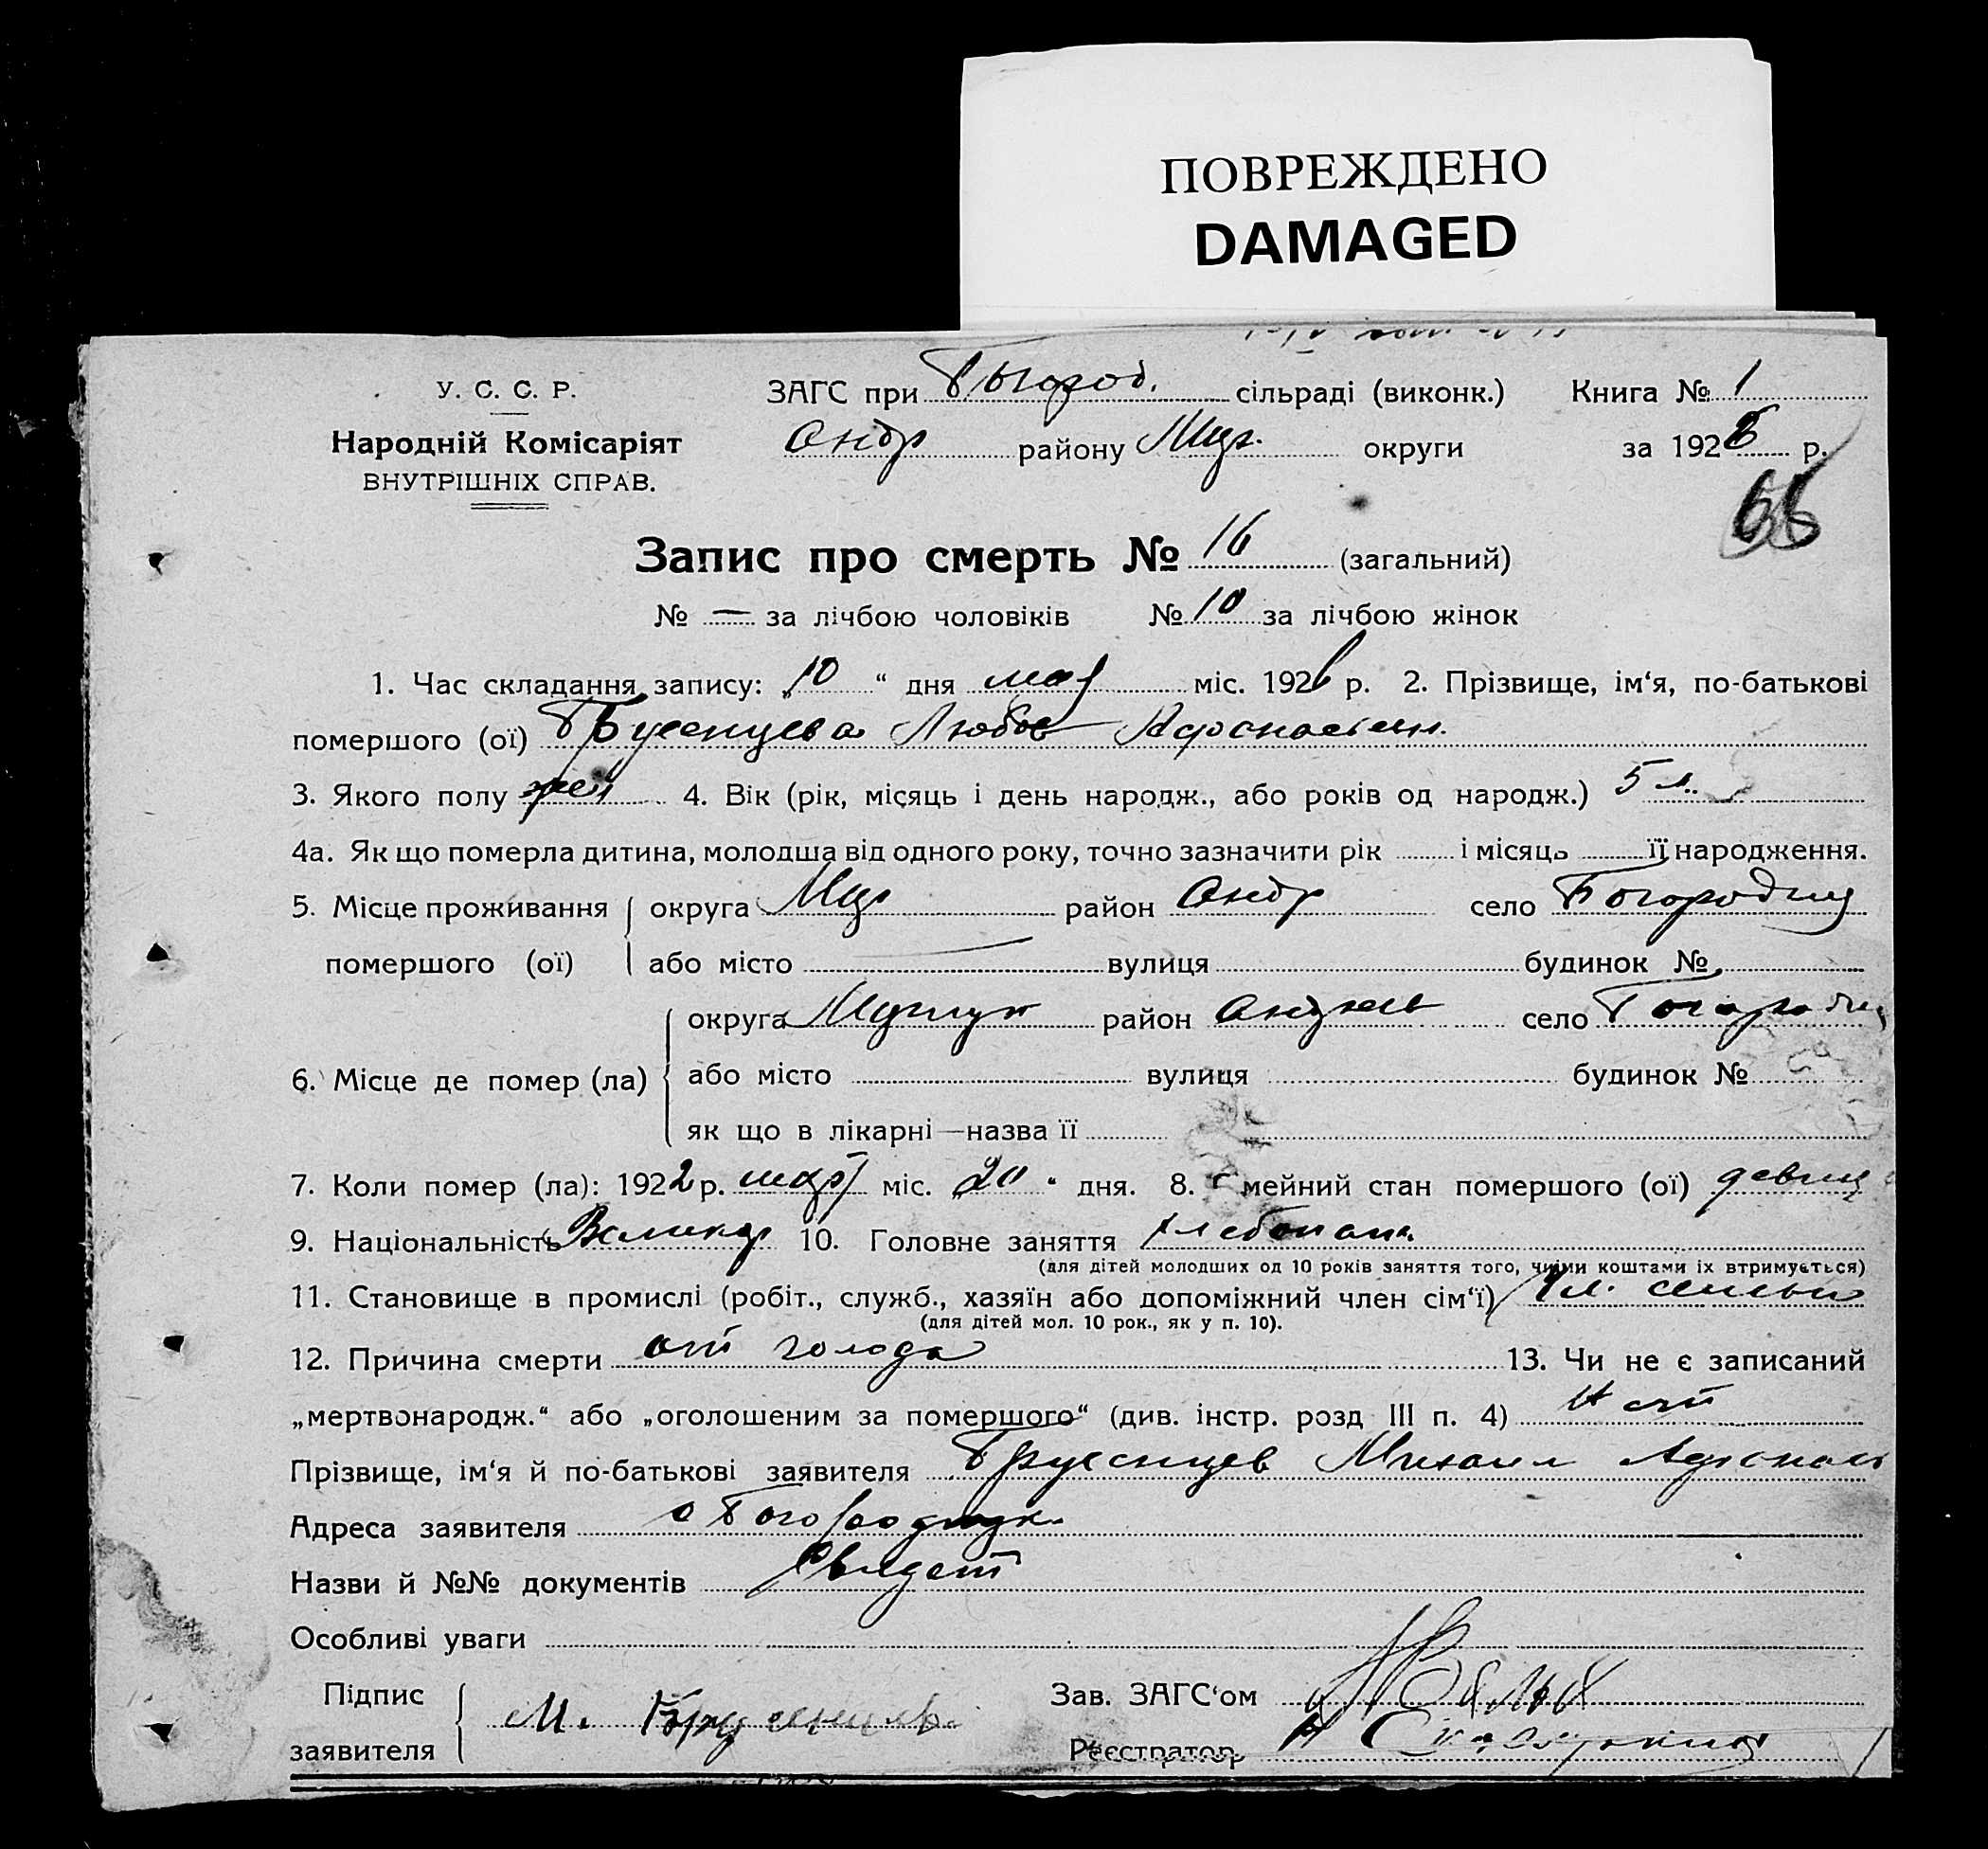 ПОВРЕЖДЕНО
DAMAGED
У. С. С. Р. ЗАГС при Богород. сільраді (виконк.) Книга № 1
Народній Комісаріят Андр району округи за 192 р.
ВНУТРІШНІХ СПРАВ.
66
Запис про смерть № 16 (загальний)
№ — за лічбою чоловіків № 10 за лічбою жінок
1. Час складання запису: „10“ дня мая міс. 1926 р. 2. Прізвище, ім‘я, по-батькові
помершого (ої) Брусенцева Любов
3. Якого полу жен 4. Вік (рік, місяць і день народж., або років од народж.) 5 л.
4а. Як що померла дитина, молодша від одного року, точно зазначити рік і місяць її народження.
5. Місце проживання округа район Андр село Богородиц
помершого (ої) або місто вулиця будинок №
округа район село Богородиц
6. Місце де помер (ла) або місто вулиця будинок №
як що в лікарні—назва її
7. Коли помер (ла): 1922 р. март міс. „20“ дня. 8. С мейний стан помершого (ої) девиц
9. Національність Великор 10. Головне заняття хлебопаш.
(для дітей молодших од 10 років заняття того, чиїми коштами їх втримується)
11. Становище в промислі (робіт., служб., хазяїн або допоміжний член сім‘ї) Чл. семьи
(для дітей мол. 10 рок., як у п. 10).
12. Причина смерти от голода 13. Чи не є записаний
„мертвонародж.“ або „оголошеним за помершого“ (див. інстр. розд III п. 4) Нет
Прізвище, ім‘я й по-батькові заявителя Брусенцев Михаил
Адреса заявителя с
Назви й №№ документів
Особливі уваги
Підпис Зав. ЗАГС‘ом
М.
заявителя Реєстратор